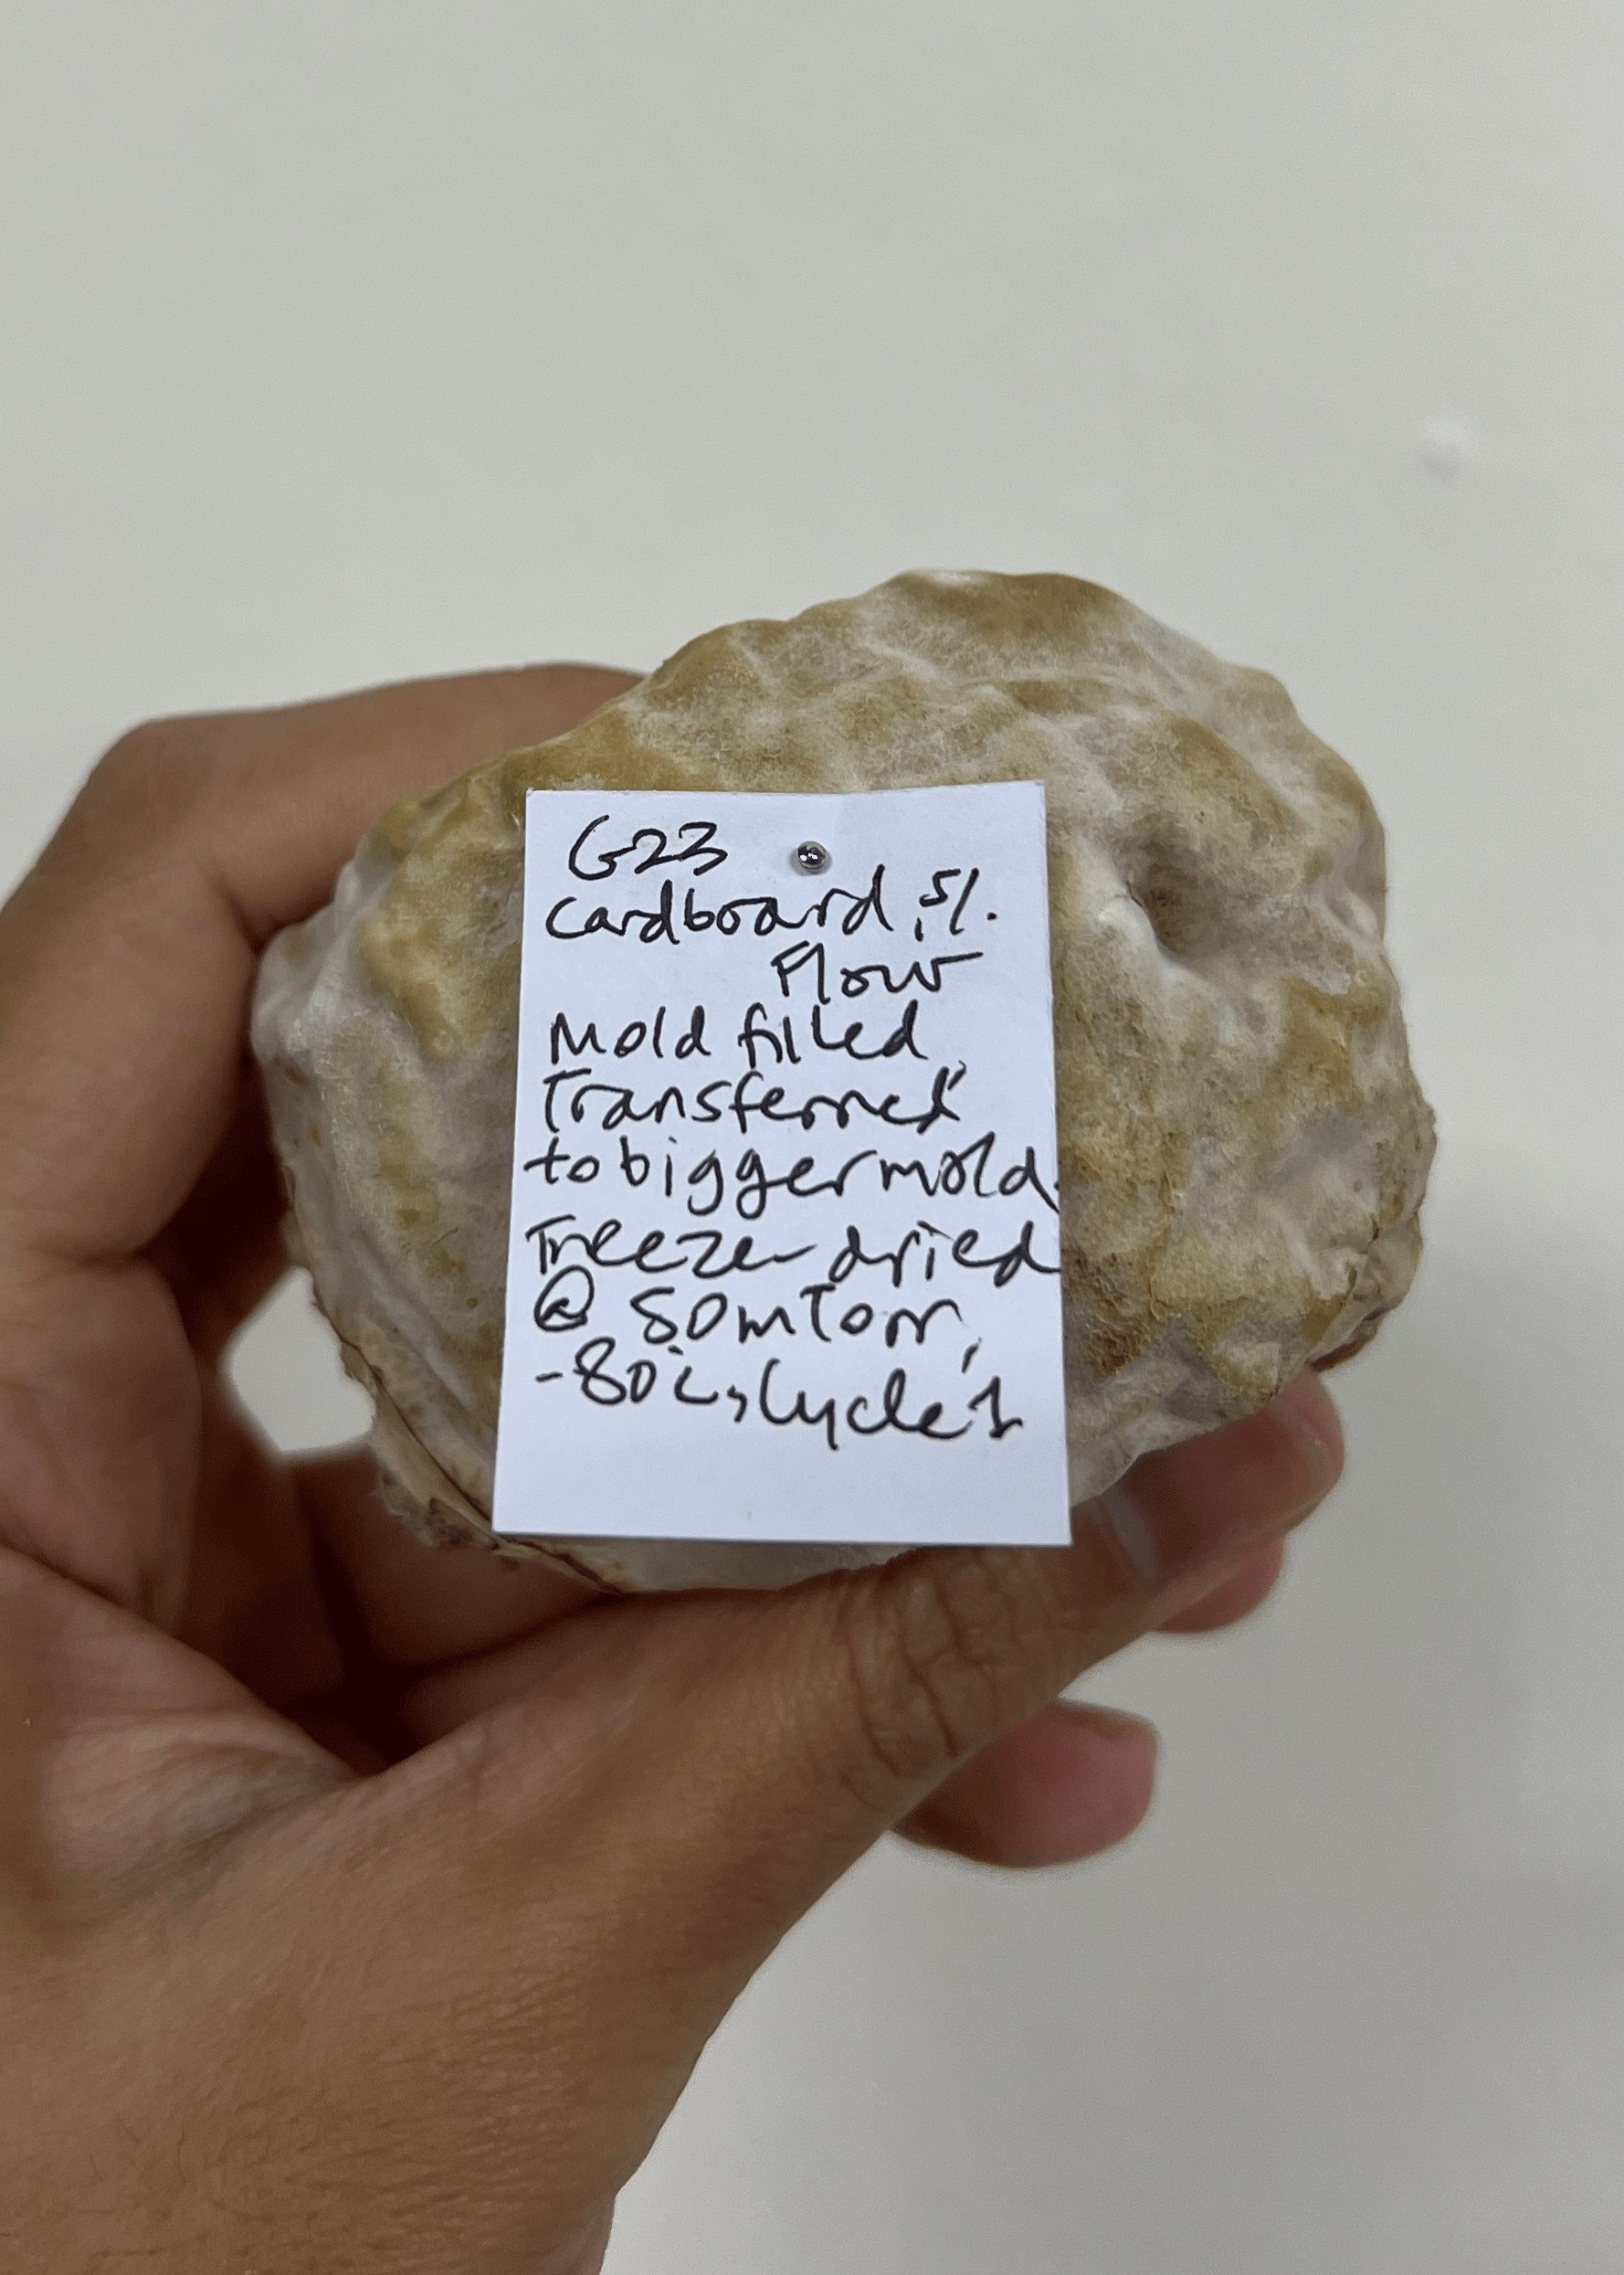 G23
Cardboard, 5%
Flour
Mold filled,
Transferred
to bigger mold.
Freeze dried
@ 50mTorr,
-80°C, Cycle 1